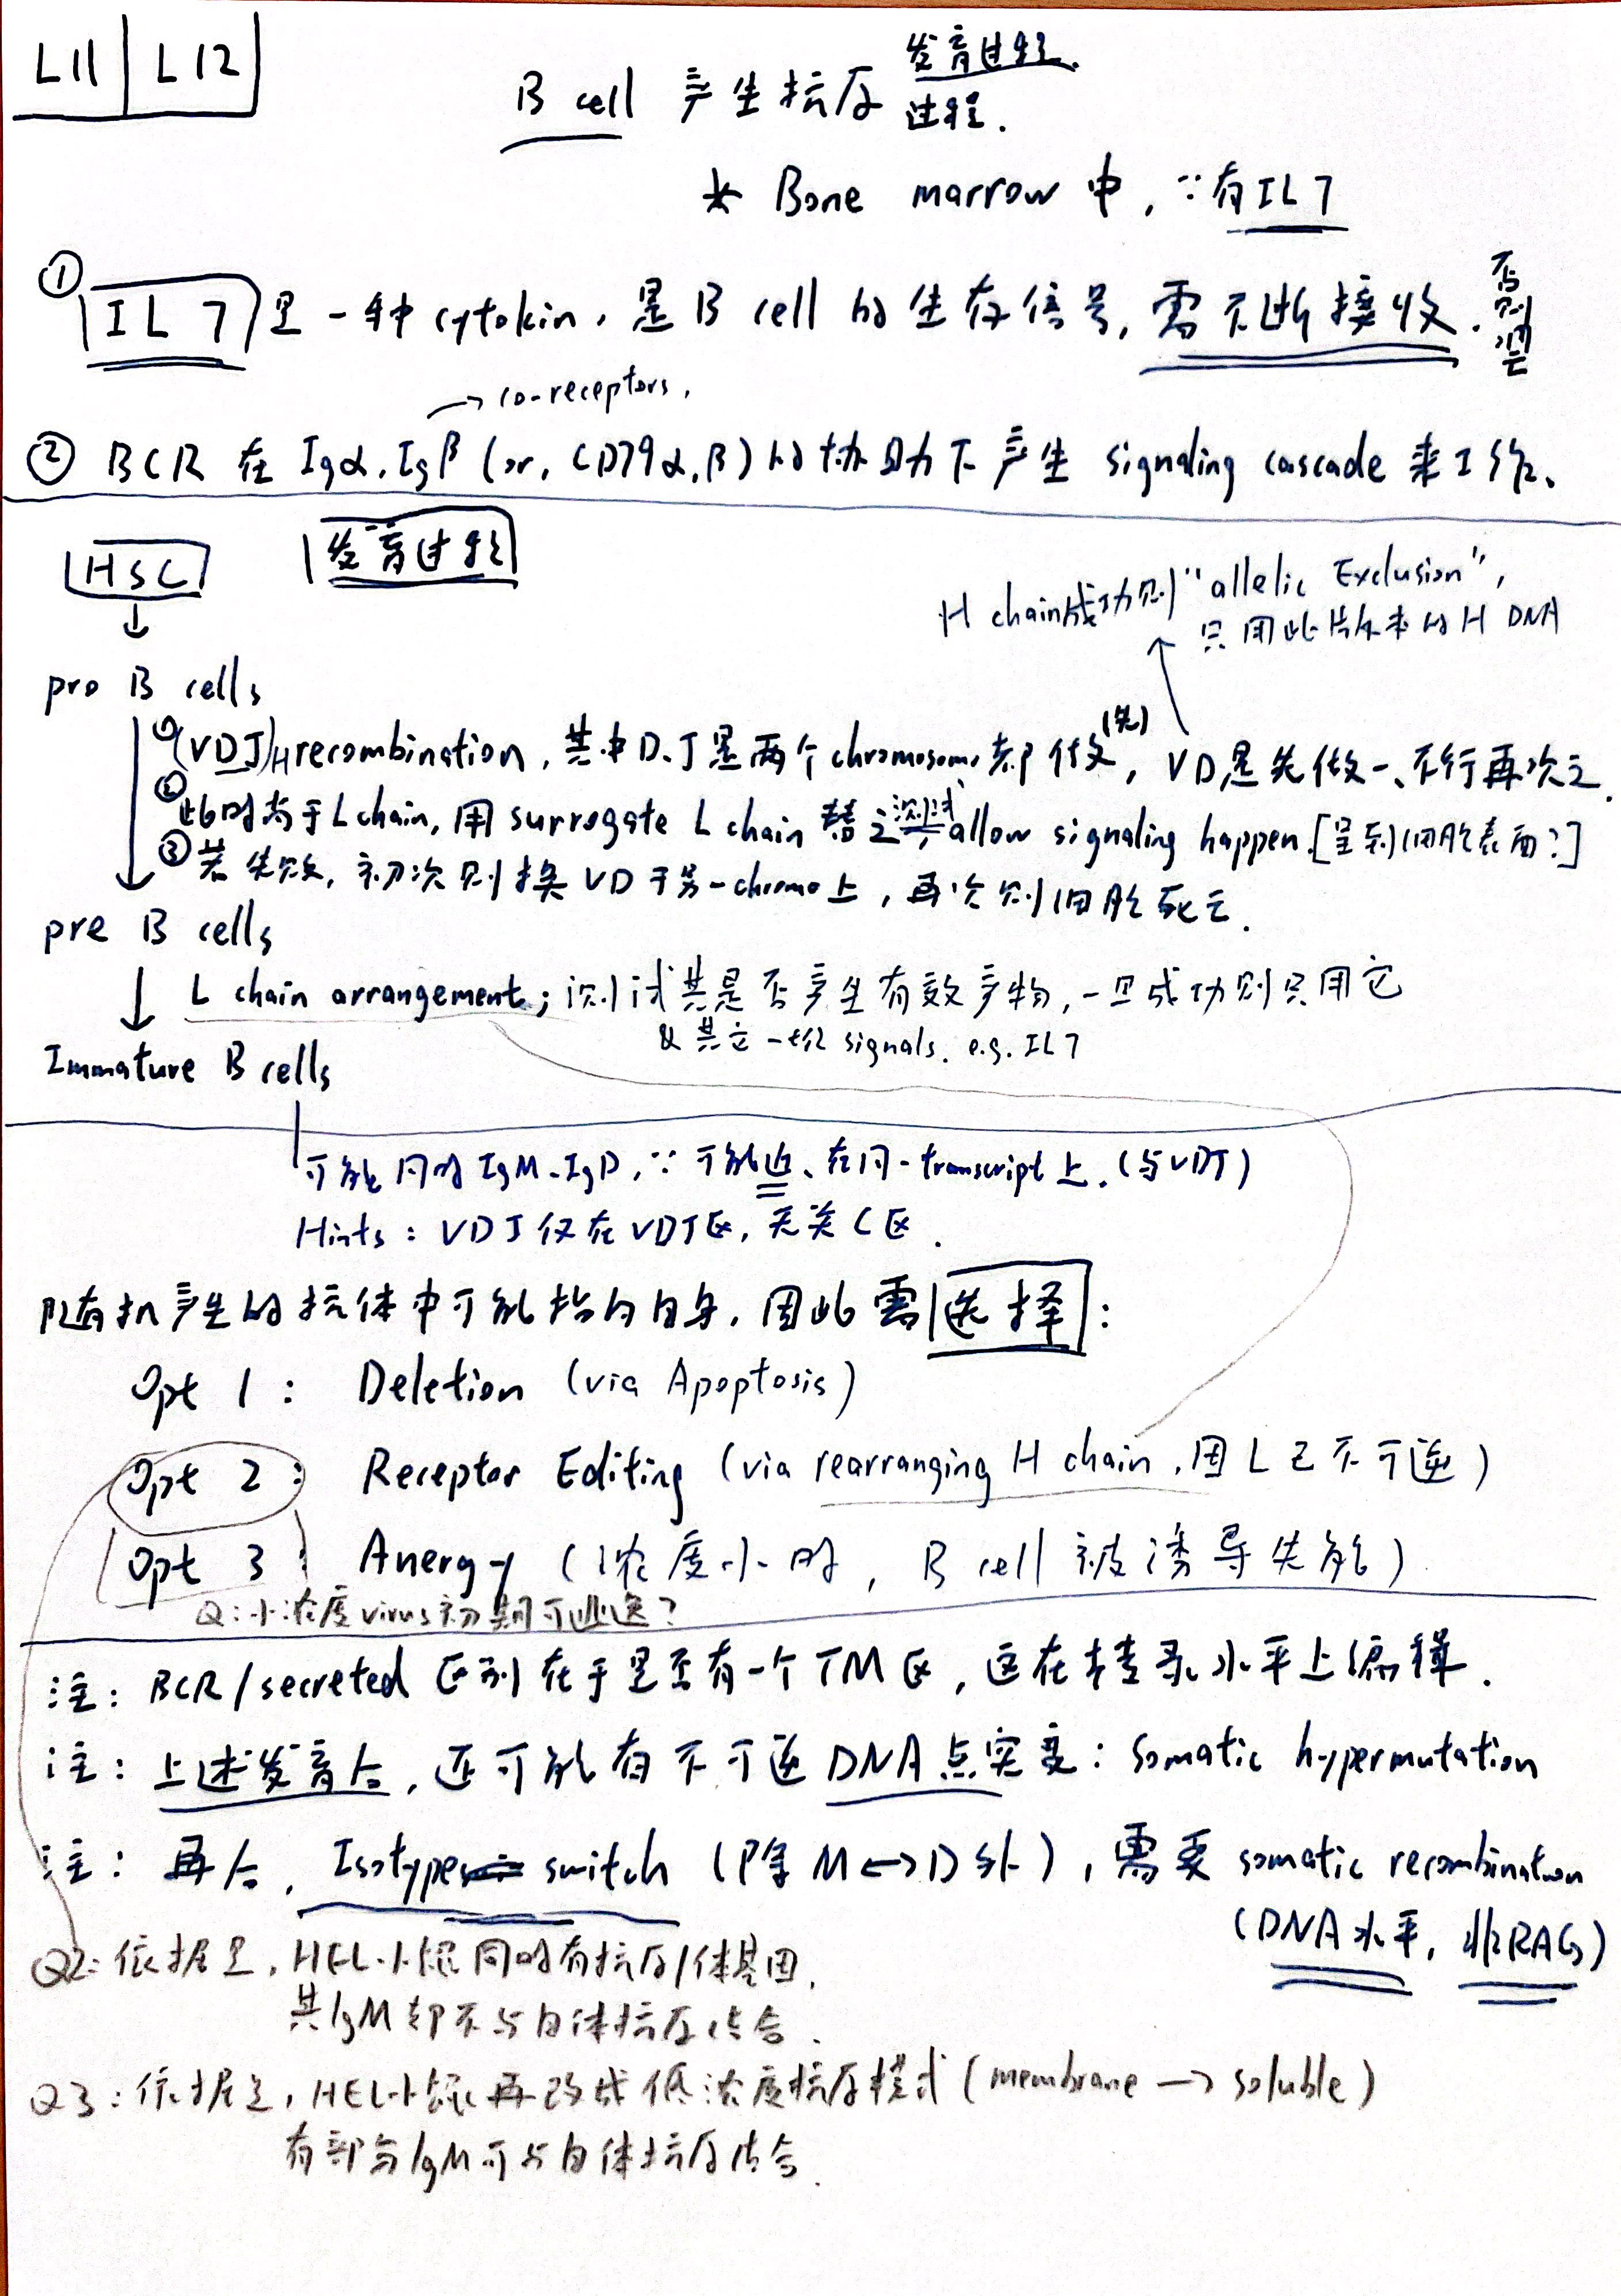 L11 | L12
发育过程.
B cell 产生抗原 过程.
* Bone marrow 中, ∵有IL7
① IL 7 是一种 cytokin, 是 B cell 的生存信号, 需不断接收. 否则凋亡
→ co-receptors,
② BCR 在 Igα, Igβ (or, CD79α,β) 的协助下产生 signaling cascade 来工作.
HSC 发育过程
↓
H chain成功则 "allelic Exclusion",
只用此版本的 H DNA
pro B cells
① (VDJ)H recombination, 其中D.J是两个chromosome都做(先), VD是先做一、不行再次之.
② 此时尚于L chain, 用 surrogate L chain 替之测试 allow signaling happen. [呈到细胞表面?]
③ 若失败, 初次则换 VD 于另一chromo上, 再次则细胞死亡.
pre B cells
↓ L chain arrangement; 测试其是否产生有效产物, 一旦成功则只用它
& 其它一些 signals. e.g. IL7
Immature B cells
可能同时 IgM. IgD, ∵ 可能近、在同一transcript上. (与VDJ)
Hints: VDJ 仅在 VDJ区, 无关 C区.
随机产生的抗体中可能指向自身, 因此需 选择 :
Opt 1: Deletion (via Apoptosis)
Opt 2: Receptor Editing (via rearranging H chain, 因 L 已不可逆)
Opt 3: Anergy (浓度小时, B cell 被诱导失能)
Q: 小浓度virus初期可逃逸?
注: BCR/secreted 区别在于是否有一个TM区, 这在转录水平上编辑.
注: 上述发育后, 还可能有不可逆DNA点突变: somatic hypermutation
注: 再后, Isotype switch (除 M↔D 外), 需要 somatic recombination
(DNA水平, 非RAG)
Q2: 依据是, HEL小鼠同时有抗原/体基因,
其IgM却不与自体抗原结合.
Q3: 依据是, HEL小鼠再改成低浓度抗原模式 (membrane → soluble)
有部分IgM可与自体抗原结合.